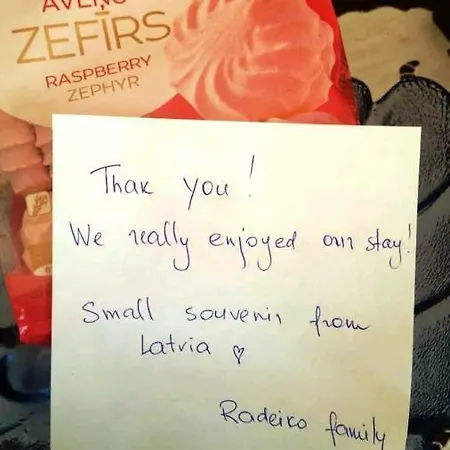 AVEŅU
ZEFĪRS
RASPBERRY
ZEPHYR
Thak you!
We really enjoyed our stay!
Small souvenir from
Latvia ♡
Radeiko family